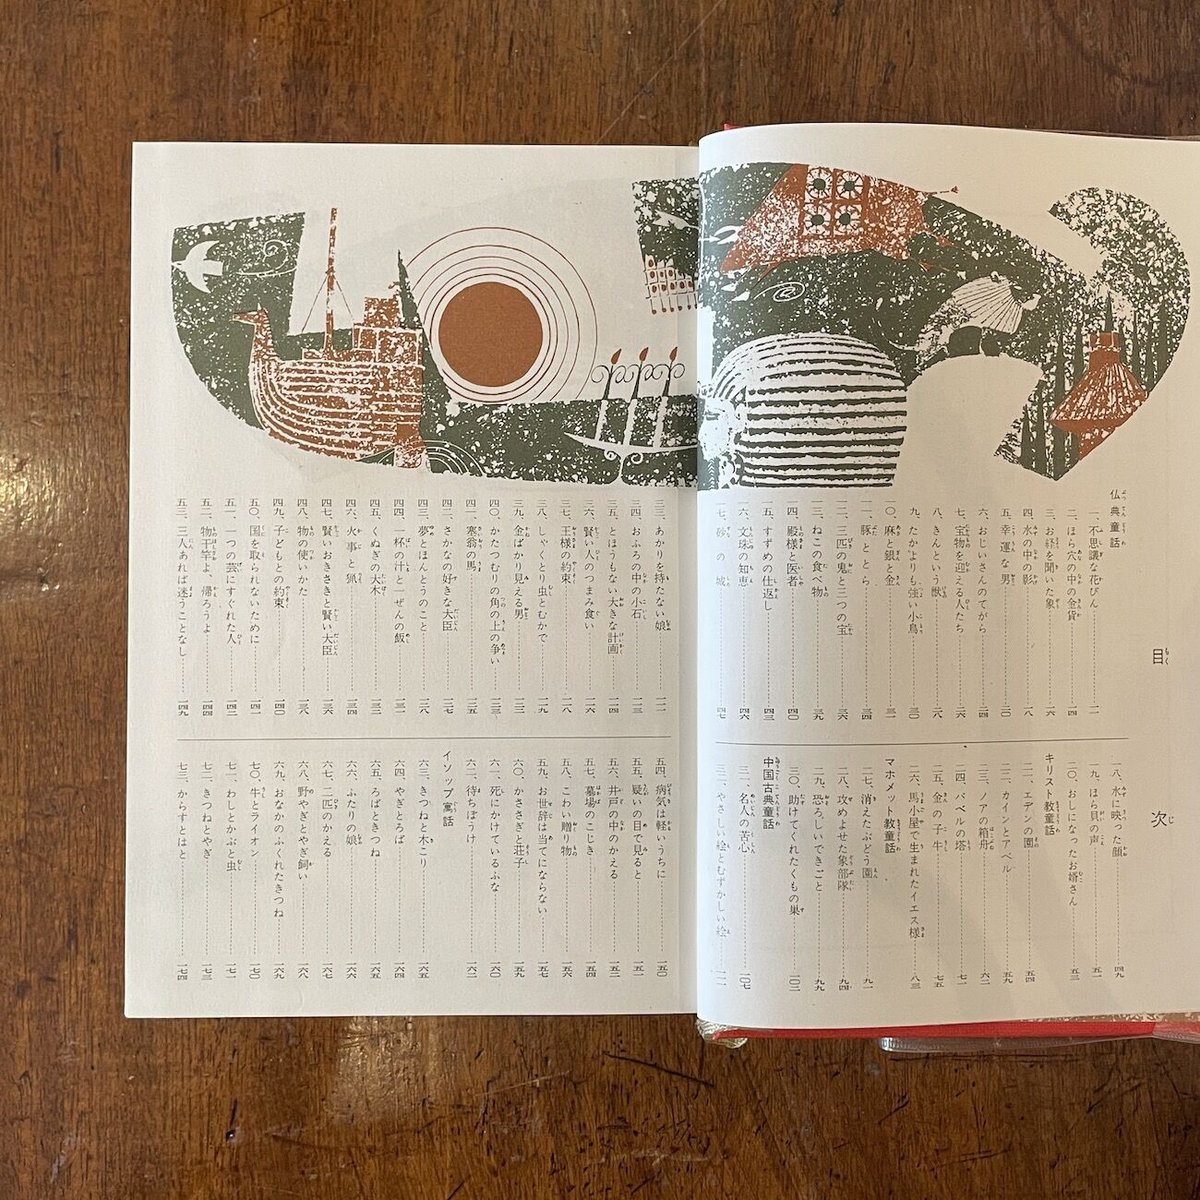 目次
仏典童話
一、不思議な花びん……一一
二、ほら穴の中の金貨……一四
三、お経を聞いた象……一六
四、水の中の影……一八
五、幸運な男……二〇
六、おじいさんのてがら……二四
七、宝物を迎える人たち……二六
八、きりんという獣……二八
九、たかよりも強い小鳥……三〇
一〇、麻と銀と金……三二
一一、豚ととら……三四
一二、三匹の鬼と三つの宝……三六
一三、ねこの食べ物……三九
一四、殿様と医者……四〇
一五、すずめの仕返し……四三
一六、文珠の知恵……四六
一七、砂の城……四七
一八、水に映った顔……四九
一九、ほら貝の声……五一
二〇、おしになったお婿さん……五三
キリスト教童話
二一、エデンの園……五四
二二、カインとアベル……五九
二三、ノアの箱舟……六二
二四、バベルの塔……七一
二五、金の子牛……七五
二六、馬小屋で生まれたイエス様……八三
マホメット教童話
二七、消えたぶどう園……九一
二八、攻めよせた象部隊……九四
二九、恐ろしいできごと……九九
三〇、助けてくれたくもの巣……一〇二
中国古典童話
三一、名人の苦心……一〇七
三二、やさしい絵とむずかしい絵……一一一
三三、あかりを持たない娘……一一二
三四、おふろの中の小石……一一三
三五、とほうもない大きな計画……一一四
三六、賢い人のつまみ食い……一一六
三七、王様の約束……一一八
三八、しゃくとり虫とむかで……一一九
三九、金ばかり見える男……一二二
四〇、かたつむりの角の上の争い……一二三
四一、塞翁の馬……一二五
四二、さかなの好きな大臣……一二七
四三、夢とほんとうのこと……一二八
四四、一杯の汁と一ぜんの飯……一三一
四五、ぬぎの大木……一三二
四六、火事と猟……一三四
四七、賢いおきさきと賢い大臣……一三六
四八、物の使いかた……一三八
四九、子どもとの約束……一四〇
五〇、国を取られないために……一四一
五一、一つの芸にすぐれた人……一四二
五二、物干竿よ、帰ろうよ……一四四
五三、三人あれば迷うことなし……一四九
五四、病気は軽いうちに……一五〇
五五、疑いの目で見ると……一五一
五六、井戸の中のかえる……一五三
五七、墓場のこじき……一五四
五八、こわい贈り物……一五六
五九、お世辞は当てにならない……一五七
六〇、かささぎと荘子……一五九
六一、死にかけているふな……一六〇
六二、待ちぼうけ……一六二
イソップ寓話
六三、きつねと木こり……一六五
六四、やぎとろば……一六四
六五、ろばときつね……一六五
六六、ふたりの娘……一六六
六七、二匹のかえる……一六七
六八、野やぎとやぎ飼い……一六八
六九、おなかのふくれたきつね……一六九
七〇、牛とライオン……一七〇
七一、わしとかぶと虫……一七一
七二、きつねとやぎ……一七三
七三、からすとはと……一七四